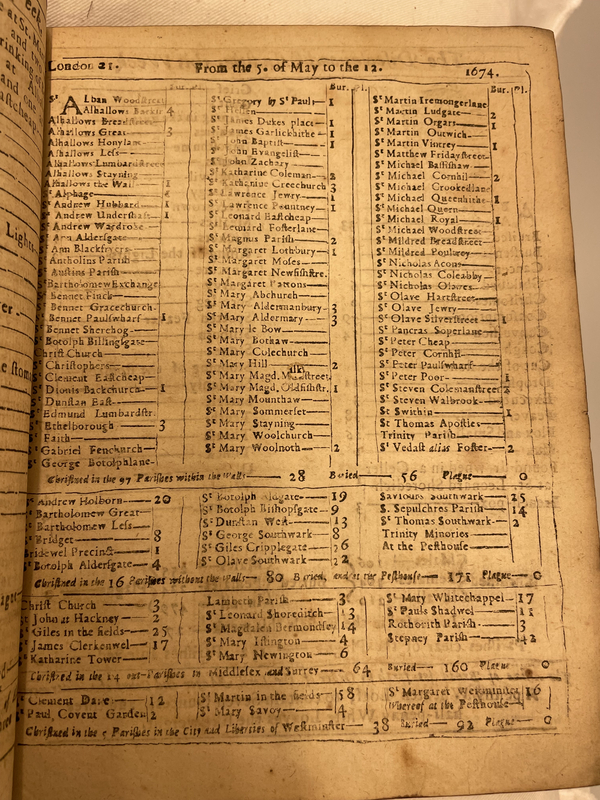 London 21. From the 5. of May to the 12. 1674.
Bur. Pl.
St Alban Woodstreet
Alhallows Barkin 4
Alhallows Breadstreet
Alhallows Great 3
Alhallows Honylane
Alhallows Less
Alhallows Lumbardstreet
Alhallows Stayning
Alhallows the Wall 1
St Alphage
St Andrew Hubbard 1
St Andrew Undershaft 1
St Andrew Wardrobe
St Ann Aldersgate
St Ann Blackfryers
St Antholins Parish
St Austins Parish
St Bartholomew Exchange
St Bennet Finck
St Bennet Gracechurch
St Bennet Paulswharf 1
St Bennet Sherehog
St Botolph Billingsgate
Christ Church
St Christophers
St Clement Eastcheap
St Dionis Backchurch 1
St Dunstan East
St Edmund Lumbardstr.
St Ethelborough 3
St Faith
St Gabriel Fenchurch
St George Botolphlane
St Gregory by St Pauls 1
St Hellen
St James Dukes place 1
St James Garlickhithe 1
St John Baptist 1
St John Evangelist
St John Zachary
St Katharine Coleman 2
St Katharine Creechurch 3
St Lawrence Jewry 1
St Lawrence Pountney 1
St Leonard Eastcheap
St Leonard Fosterlane
St Magnus Parish 2
St Margaret Lothbury 1
St Margaret Moses
St Margaret Newfishstre.
St Margaret Pattons
St Mary Abchurch
St Mary Aldermanbury 3
St Mary Aldermary 3
St Mary le Bow
St Mary Bothaw
St Mary Colechurch
St Mary Hill 2
St Mary Magd. Milkstreet
St Mary Magd. Oldfishstr. 1
St Mary Mounthaw
St Mary Sommerset
St Mary Stayning
St Mary Woolchurch
St Mary Woolnoth 2
Bur. Pl.
St Martin Iremongerlane
St Martin Ludgate 2
St Martin Orgars 1
St Martin Outwich
St Martin Vintrey 1
St Matthew Fridaystreet
St Michael Bassishaw
St Michael Cornhil 2
St Michael Crookedlane
St Michael Queenhithe 1
St Michael Quern
St Michael Royal 1
St Michael Woodstreet
St Mildred Breadstreet
St Mildred Poultrey
St Nicholas Acons
St Nicholas Coleabby
St Nicholas Olaves
St Olave Hartstreet
St Olave Jewry
St Olave Silverstreet 1
St Pancras Soperlane
St Peter Cheap
St Peter Cornhil
St Peter Paulswharf
St Peter Poor 1
St Steven Colemanstreet 2
St Steven Walbrook
St Swithin 1
St Thomas Apostles
Trinity Parish
St Vedast alias Foster 2
Christned in the 97 Parishes within the Walls 28 Buried 56 Plague 0
St Andrew Holborn 20
St Bartholomew Great
St Bartholomew Less
St Bridget 8
Bridewel Precinct 1
St Botolph Aldersgate 4
St Botolph Aldgate 19
St Botolph Bishopsgate 9
St Dunstan West 13
St George Southwark 8
St Giles Cripplegate 26
St Olave Southwark 22
Saviours Southwark 25
S. Sepulchres Parish 14
St Thomas Southwark 2
Trinity Minories
At the Pesthouse
Christned in the 16 Parishes without the Walls 80 Buried, and at the Pesthouse 171 Plague 0
Christ Church 3
St John at Hackney 2
St Giles in the fields 25
St James Clerkenwel 17
St Katharine Tower
Lambeth Parish 3
St Leonard Shoreditch 13
St Magdalen Bermondsey 14
St Mary Islington 4
St Mary Newington 6
St Mary Whitechappel 17
St Pauls Shadwel 11
Rothorith Parish 3
Stepney Parish 42
Christned in the 14 out-Parishes in Middlesex and Surrey 64 Buried 160 Plague 0
St Clement Danes 12
St Paul Covent Garden 2
St Martin in the fields 58
St Mary Savoy 4
St Margaret Westminster 16
Whereof at the Pesthouse
Christned in the 5 Parishes in the City and Liberties of Westminster 38 Buried 92 Plague 0